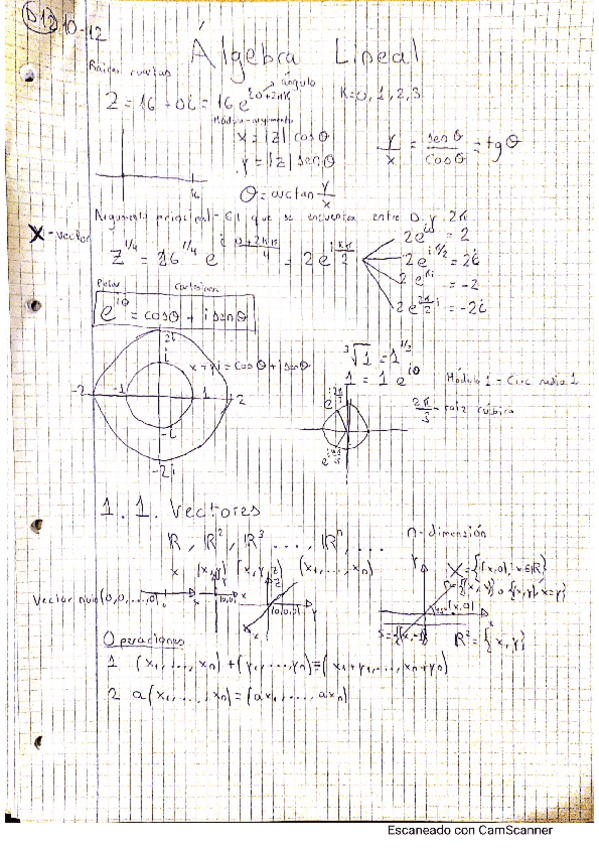 D12 10-12
Álgebra Lineal
Raíces
ángulo
Z = 16 + 0i = 16 e^{i 0+2πK} K=0, 1, 2, 3
Módulo-argumento
x = |z| cos θ
y = |z| sen θ
y/x = sen θ/cos θ = tg θ
θ = arctan y/x
16
Argumento principal - El que se encuentra entre 0 y 2π
X - vector
Z^{1/4} = 16^{1/4} e^{i (0+2Kπ)/4} = 2 e^{i Kπ/2}
2e^{i0} = 2
2e^{iπ/2} = 2i
2e^{πi} = -2
2e^{3π/2 i} = -2i
Polar Cartesianas
e^{iθ} = cos θ + i sen θ
2i
i
x + yi = cos θ + i sen θ
-2 -1 1 2
-i
-2i
∛1 = 1^{1/3}
1 = 1 e^{i0}
Módulo 1 = Circ radio 1
2π/3 - raíz cúbica
1.1. Vectores
ℝ, ℝ², ℝ³ ..., ℝⁿ, ... n-dimensión
x (x,y) (x,y,z) (x₁, ..., xₙ)
X = {(x,0), x∈ℝ}
Vector nulo (0,0,...,0)
(0,0) (0,0,0) (x,0)
ℝ² = {x, y}
Operaciones
1 (x₁, ..., xₙ) + (y₁, ..., yₙ) = (x₁+y₁, ..., xₙ+yₙ)
2 a(x₁, ..., xₙ) = (ax₁, ..., axₙ)
Escaneado con CamScanner